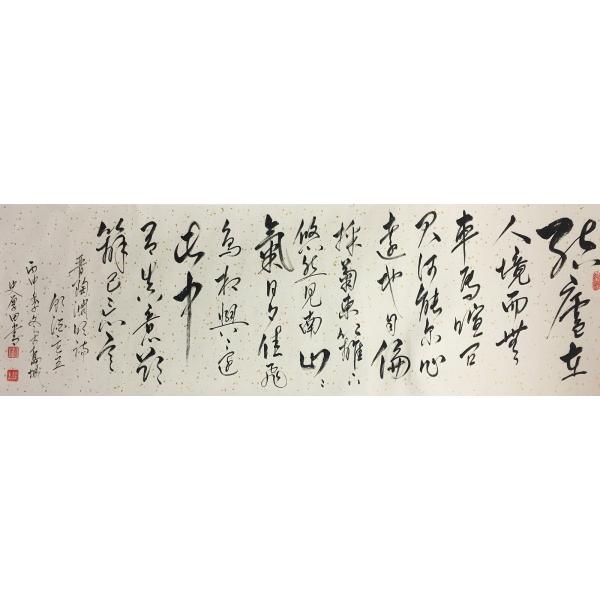 結廬在
人境而無
車馬喧問
君何能尔心
遠地自偏
採菊東籬下
悠然見南山
氣日夕佳飛
鳥相與還
此中
有真意欲
辨已忘言
晉陶淵明詩
飲酒其五
丙申季冬
田書